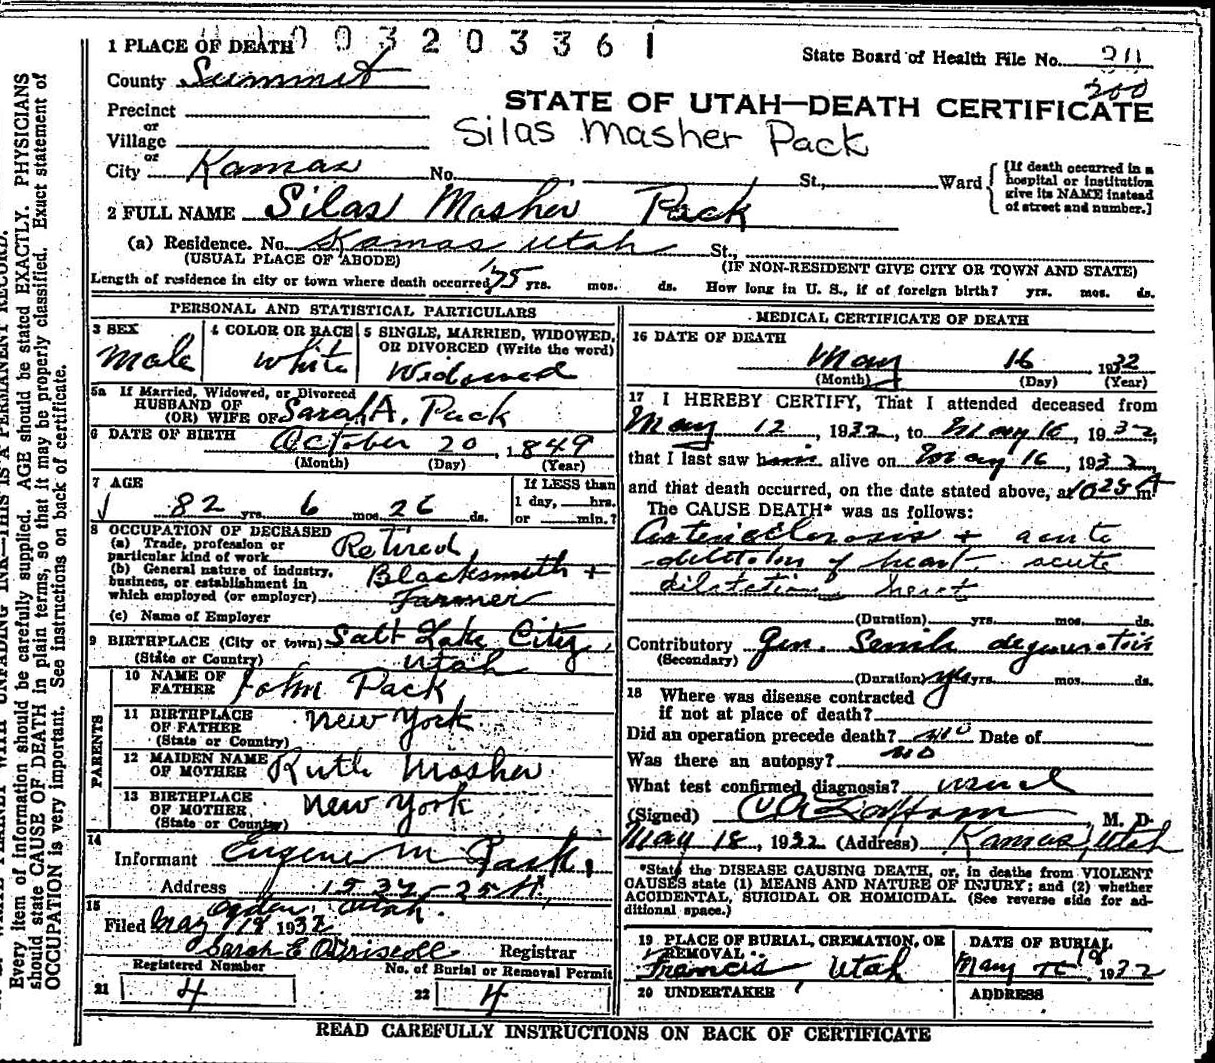 1 PLACE OF DEATH 003203361
State Board of Health File No. 211
County Summit
200
Precinct
STATE OF UTAH—DEATH CERTIFICATE
or
Village
Silas Masher Pack
or
City Kamas No. , St., Ward
[If death occurred in a
hospital or institution
give its NAME instead
of street and number.]
2 FULL NAME Silas Masher Pack
(a) Residence. No. Kamas Utah St.,
(USUAL PLACE OF ABODE) (IF NON-RESIDENT GIVE CITY OR TOWN AND STATE)
Length of residence in city or town where death occurred 75 yrs. mos. ds. How long in U. S., if of foreign birth? yrs. mos. ds.
PERSONAL AND STATISTICAL PARTICULARS
3 SEX
Male
4 COLOR OR RACE
White
5 SINGLE, MARRIED, WIDOWED,
OR DIVORCED (Write the word)
Widowed
5a If Married, Widowed, or Divorced
HUSBAND OF
(OR) WIFE OF Sarah A. Pack
6 DATE OF BIRTH October 20, 1849
(Month) (Day) (Year)
7 AGE
82 yrs. 6 mos. 26 ds.
If LESS than
1 day, hrs.
or min.?
8 OCCUPATION OF DECEASED
(a) Trade, profession or
particular kind of work Retired
(b) General nature of industry,
business, or establishment in
which employed (or employer) Blacksmith +
Farmer
(c) Name of Employer
9 BIRTHPLACE (City or town) Salt Lake City,
(State or Country) Utah
PARENTS
10 NAME OF
FATHER John Pack
11 BIRTHPLACE
OF FATHER
(State or Country) New York
12 MAIDEN NAME
OF MOTHER Ruth Mosher
13 BIRTHPLACE
OF MOTHER,
(State or Country) New York
14
Informant Eugene M Pack.
Address 1537-25 St.
Ogden, Utah.
15
Filed May 19 1932
Sarah E Driscoll Registrar
Registered Number
21 4
No. of Burial or Removal Permit
22 4
MEDICAL CERTIFICATE OF DEATH
16 DATE OF DEATH
May 16 1932
(Month) (Day) (Year)
17 I HEREBY CERTIFY, That I attended deceased from
May 12, 1932, to May 16, 1932,
that I last saw him alive on May 16, 1932,
and that death occurred, on the date stated above, at 1025 A m.
The CAUSE DEATH* was as follows:
Arteriosclerosis + acute
dilitation of heart. acute
dilatation heart
(Duration) yrs. mos. ds.
Contributory Gen. Senile degeneration
(Secondary)
(Duration) yrs yrs. mos. ds.
18 Where was disease contracted
if not at place of death?
Did an operation precede death? no Date of
Was there an autopsy? no
What test confirmed diagnosis? usual
(Signed) , M. D.
May 18, 1932 (Address) Kamas, Utah
*State the DISEASE CAUSING DEATH, or, in deaths from VIOLENT
CAUSES state (1) MEANS AND NATURE OF INJURY; and (2) whether
ACCIDENTAL, SUICIDAL OR HOMICIDAL. (See reverse side for ad-
ditional space.)
19 PLACE OF BURIAL, CREMATION, OR
REMOVAL
Francis, Utah
DATE OF BURIAL
May 18 1932
20 UNDERTAKER
ADDRESS
READ CAREFULLY INSTRUCTIONS ON BACK OF CERTIFICATE
THIS IS A PERMANENT RECORD.
Every item of information should be carefully supplied. AGE should be stated EXACTLY. PHYSICIANS
should state CAUSE OF DEATH in plain terms, so that it may be properly classified. Exact statement of
OCCUPATION is very important. See instructions on back of certificate.